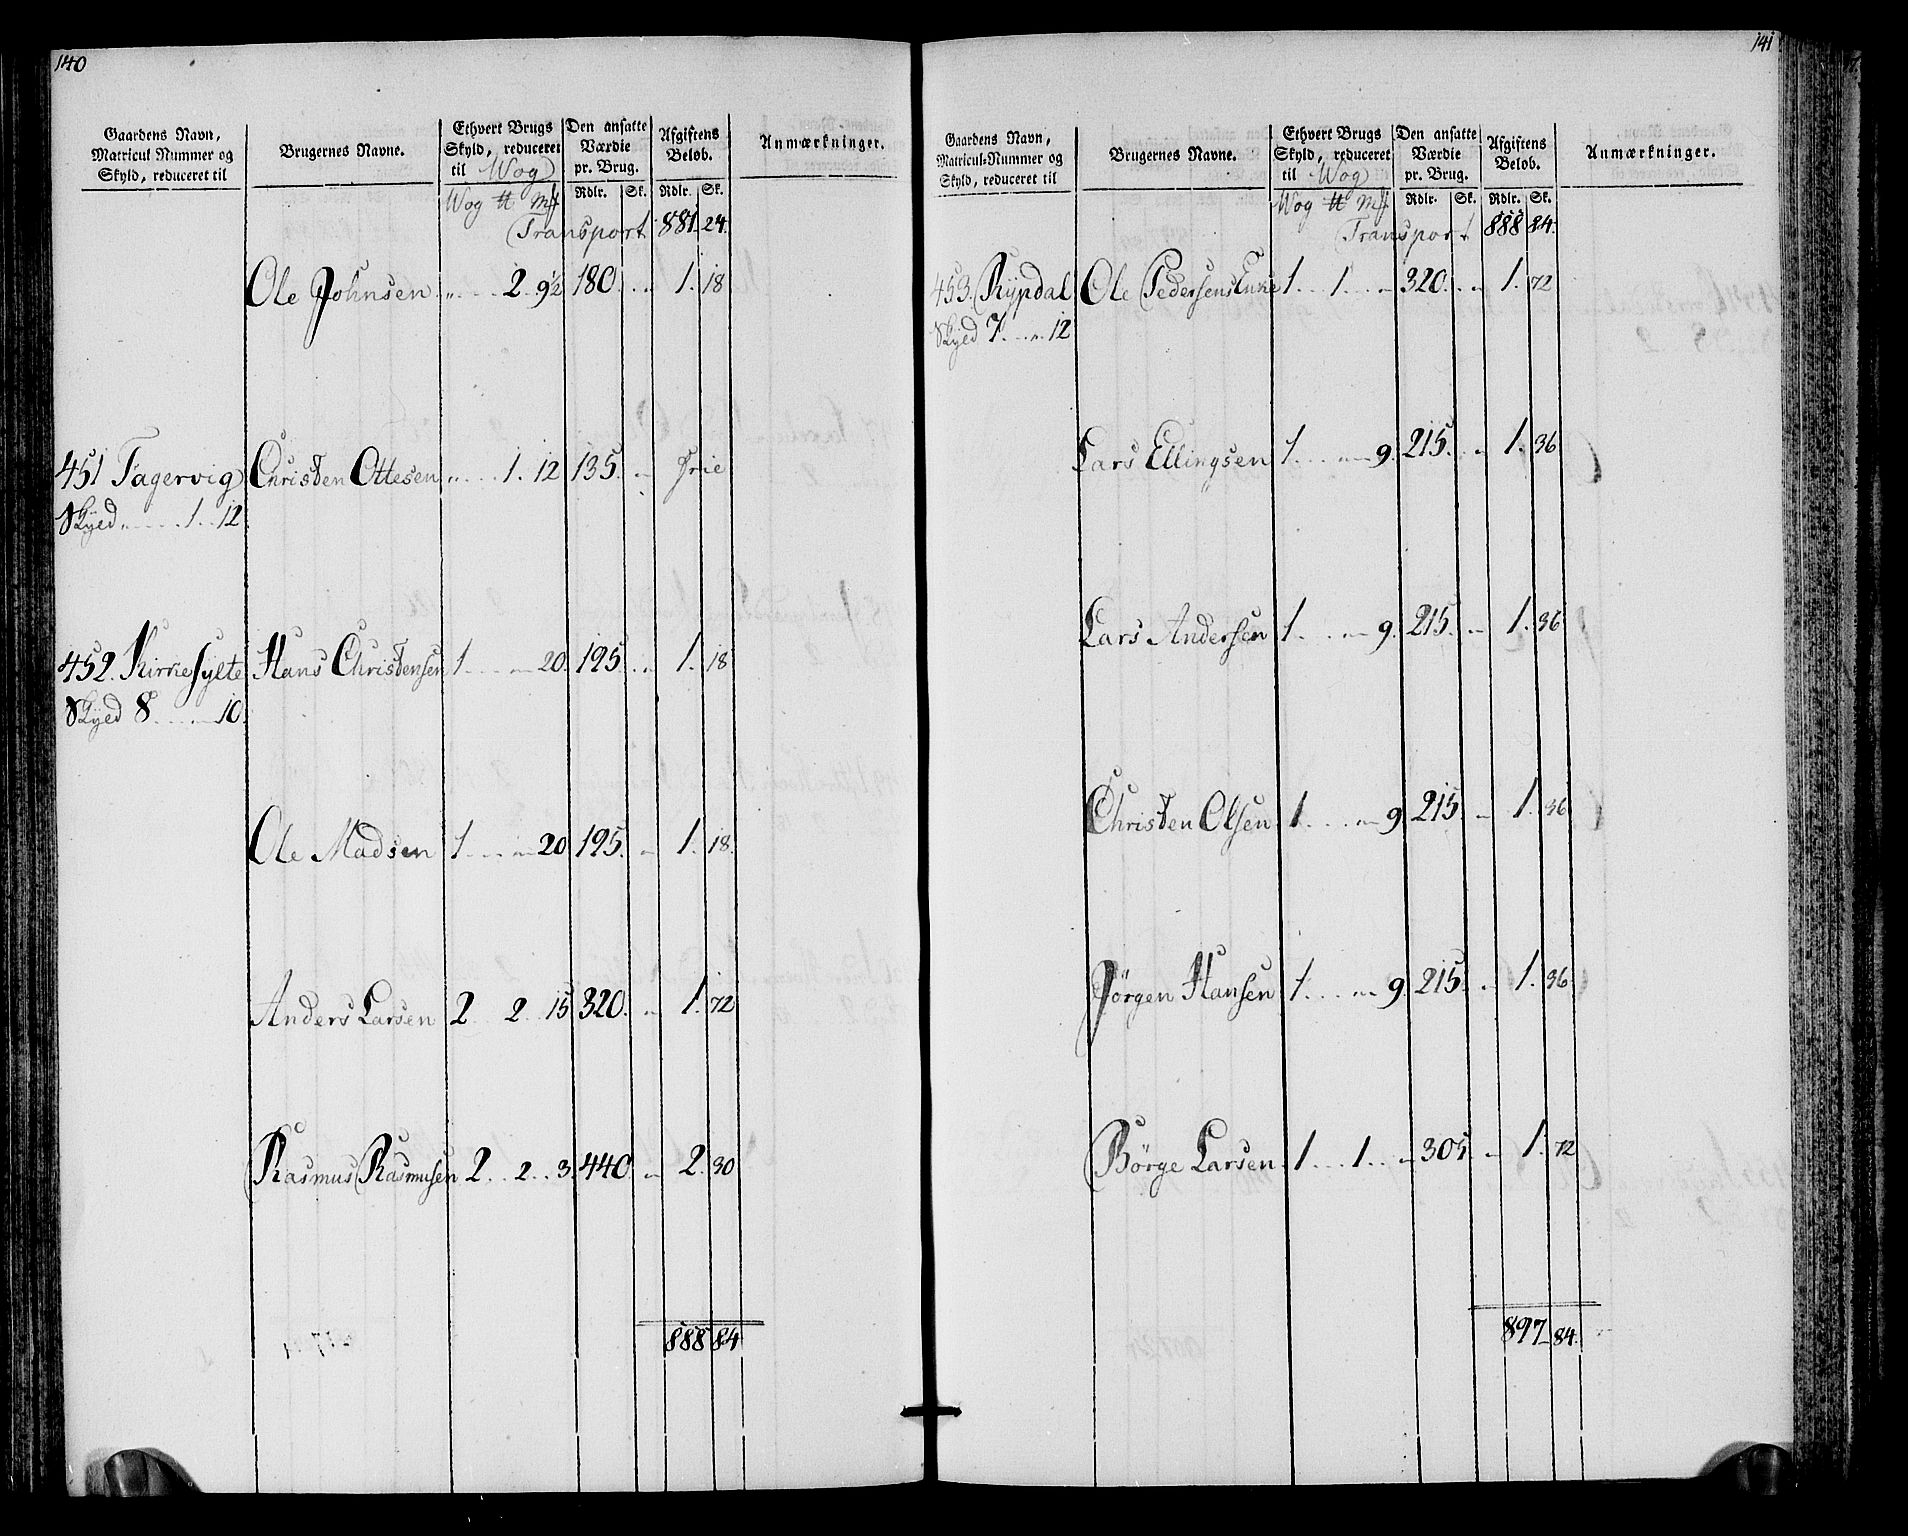 140
Gaardens Navn, Matricul Nummer og Skyld, reduceret til | Brugernes Navne. | Ethvert Brugs Skyld, reduceret til Wog | Den ansatte Værdie pr. Brug. | Afgiftens Beløb. | Anmærkninger.
Wog ℔ Mk | Rdlr. Sk. | Rdlr. Sk.
Transport 881. 24.
Ole Johnsen „ 2. 9½ 180. „ 1. 18
451 Fagervig Christen Ottesen „ 1. 12 135. „ Frie
Skyed „ 1. 12.
452. Kirkesylte Hans Christensen 1 „ 20. 195. „ 1. 18
Skyed 8. „ 10.
Ole Madsen 1. „ 20 195. „ 1. 18.
Anders Larsen 2. 2. 15 320. „ 1. 72
Rasmus Rasmusen 2. 2. 3. 440. „ 2. 30
888 84
141
Gaardens Navn, Matricul-Nummer og Skyld, reduceret til | Brugernes Navne. | Ethvert Brugs Skyld, reduceret til Wog | Den ansatte Værdie pr. Brug. | Afgiftens Beløb. | Anmærkninger.
Wog ℔ Mk | Rdlr. Sk. | Rdlr. Sk.
Transport 888 84.
453. Rypdal Ole Pedersens Enke 1. 1. „ 320. „ 1. 72
Skyed 7. „ 12
Lars Ellingsen 1. „ 9. 215. „ 1. 36
Lars Andersen 1. „ 9. 215. „ 1. 36
Christen Olsen 1. „ 9 215. „ 1. 36
Jörgen Hansen 1. „ 9. 215. „ 1. 36.
Börge Larsen 1. 1. „ 305 „ 1. 72
897 84.